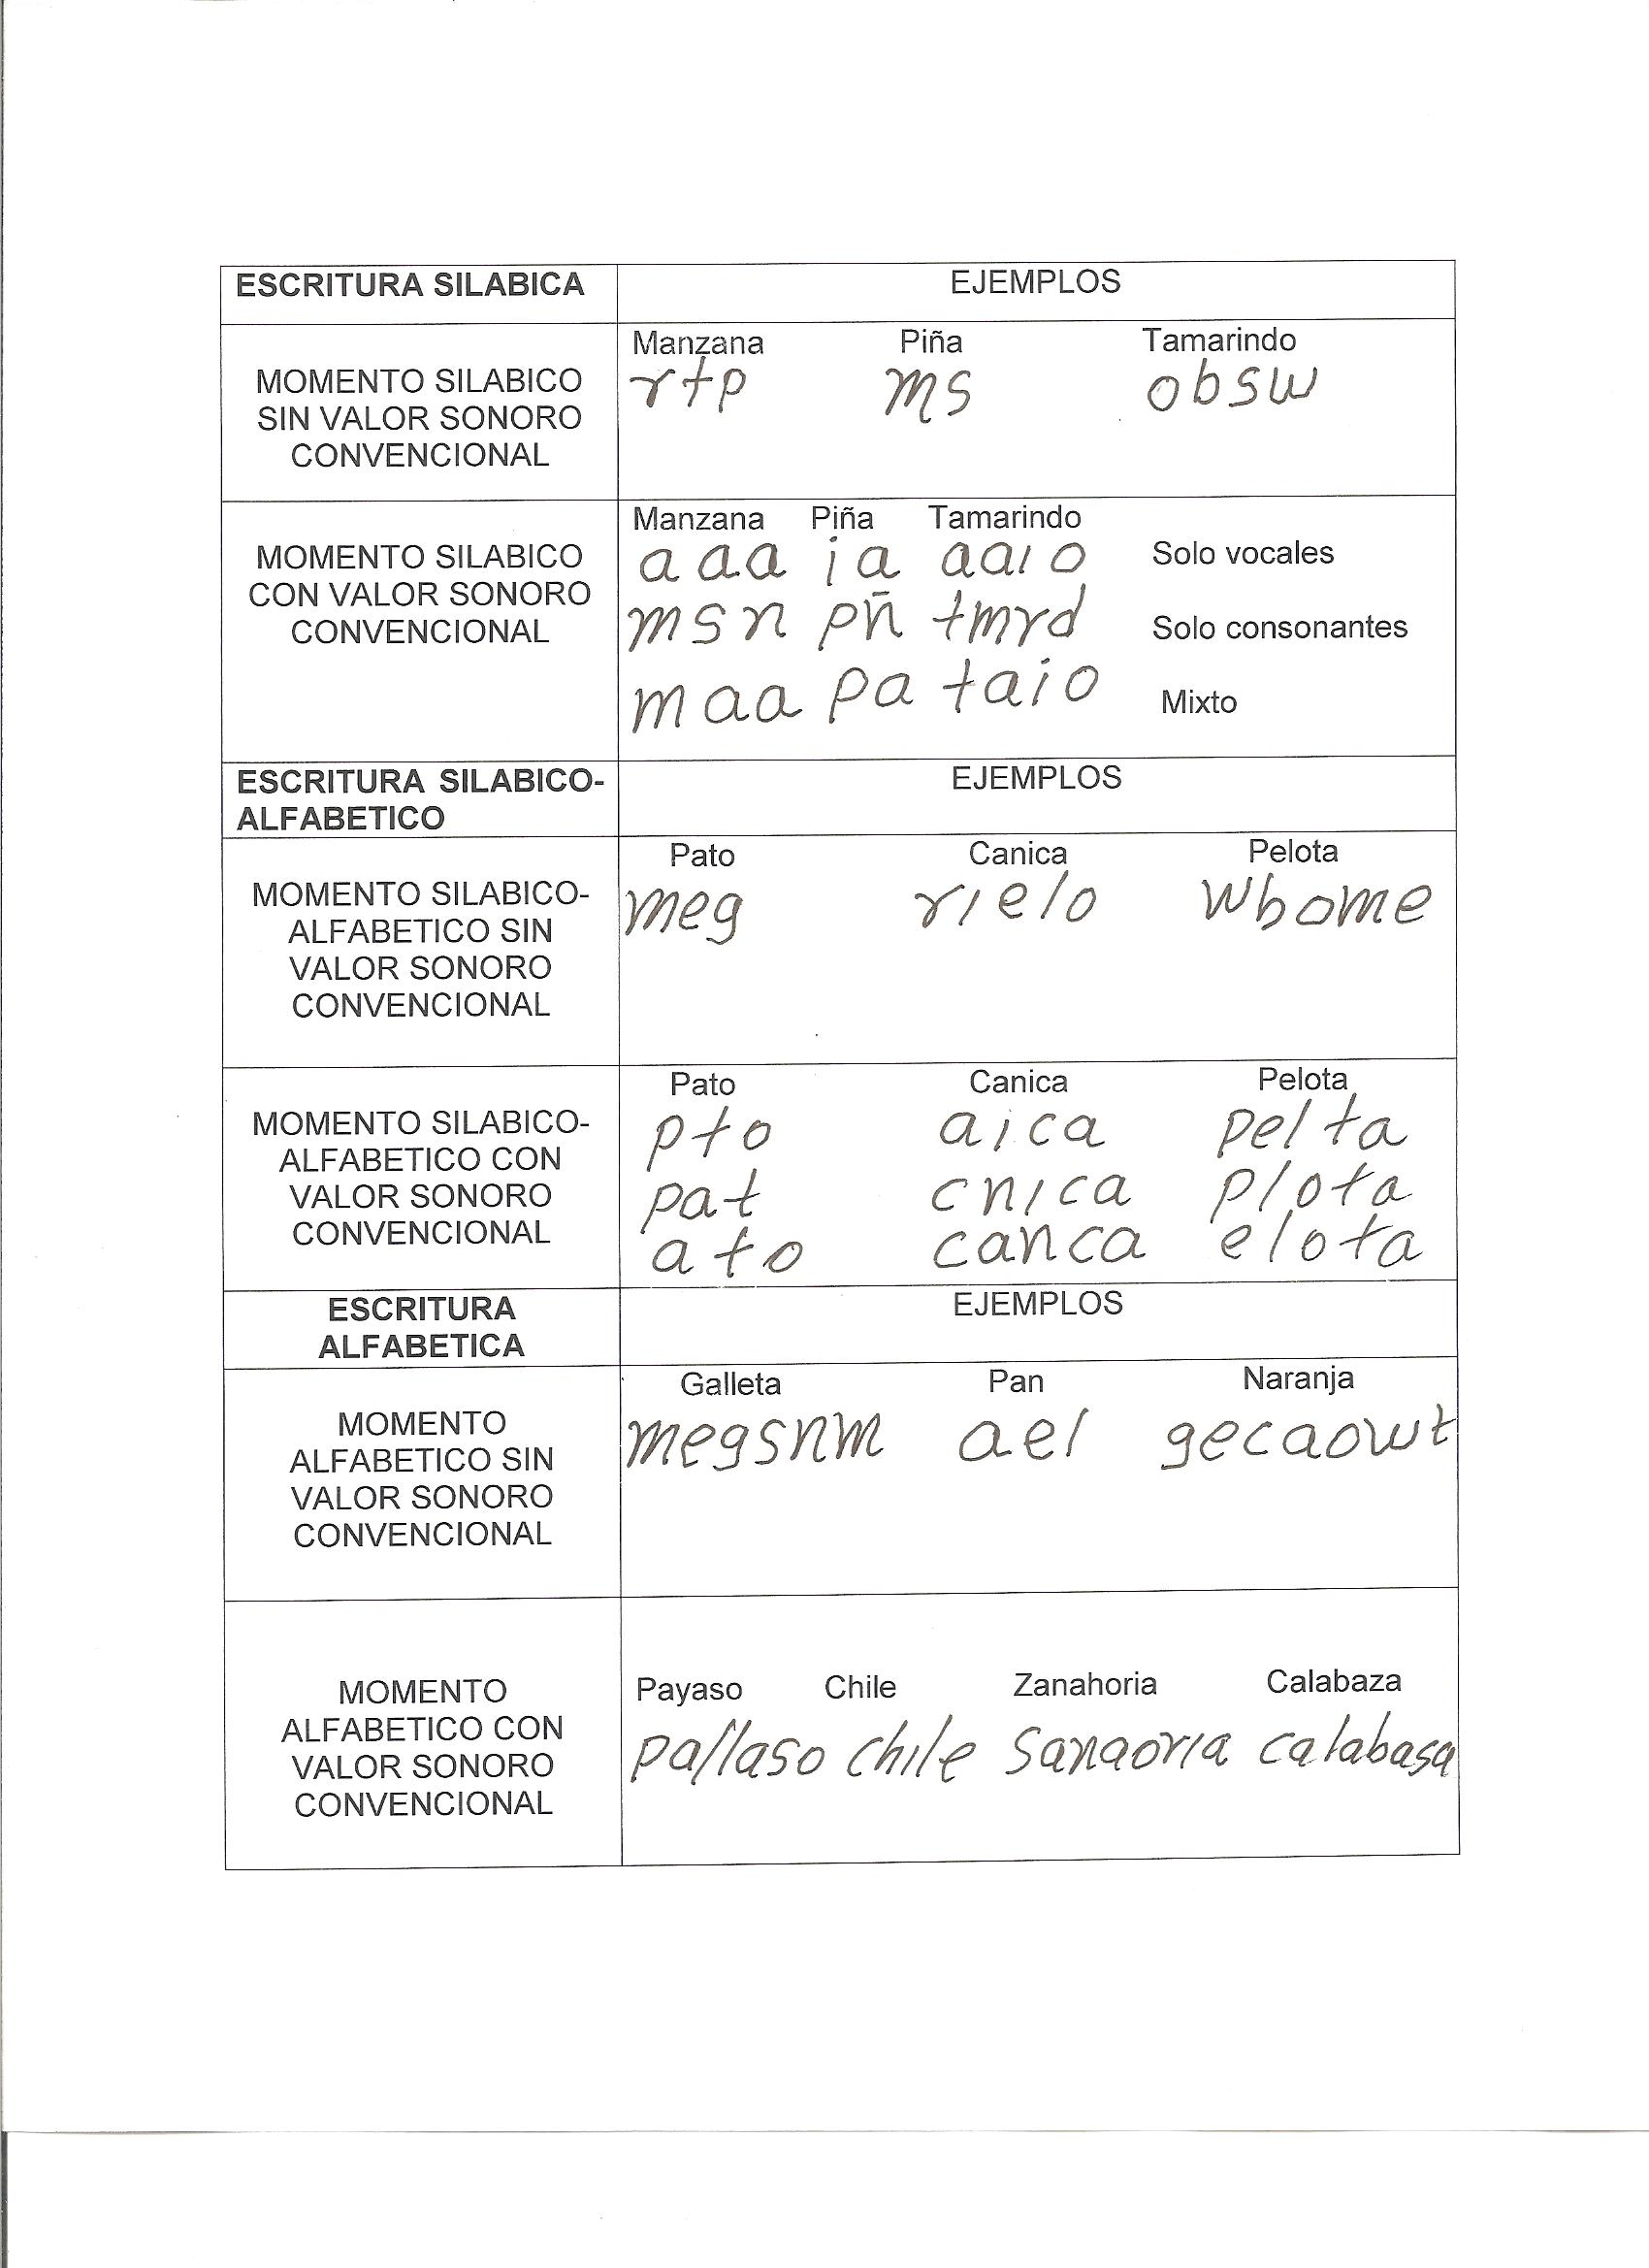 ESCRITURA SILABICA EJEMPLOS
MOMENTO SILABICO
SIN VALOR SONORO
CONVENCIONAL
Manzana Piña Tamarindo
rtp ms obsw
MOMENTO SILABICO
CON VALOR SONORO
CONVENCIONAL
Manzana Piña Tamarindo
a a a i a a a i o Solo vocales
m s n pñ tmrd Solo consonantes
m a a pa taio Mixto
ESCRITURA SILABICO-
ALFABETICO
EJEMPLOS
MOMENTO SILABICO-
ALFABETICO SIN
VALOR SONORO
CONVENCIONAL
Pato Canica Pelota
meg rielo wbome
MOMENTO SILABICO-
ALFABETICO CON
VALOR SONORO
CONVENCIONAL
Pato Canica Pelota
pto aica pelta
pat cnica plota
ato canca elota
ESCRITURA
ALFABETICA
EJEMPLOS
MOMENTO
ALFABETICO SIN
VALOR SONORO
CONVENCIONAL
Galleta Pan Naranja
megsnm ael gecaowt
MOMENTO
ALFABETICO CON
VALOR SONORO
CONVENCIONAL
Payaso Chile Zanahoria Calabaza
pallaso chile sanaoria calabasa